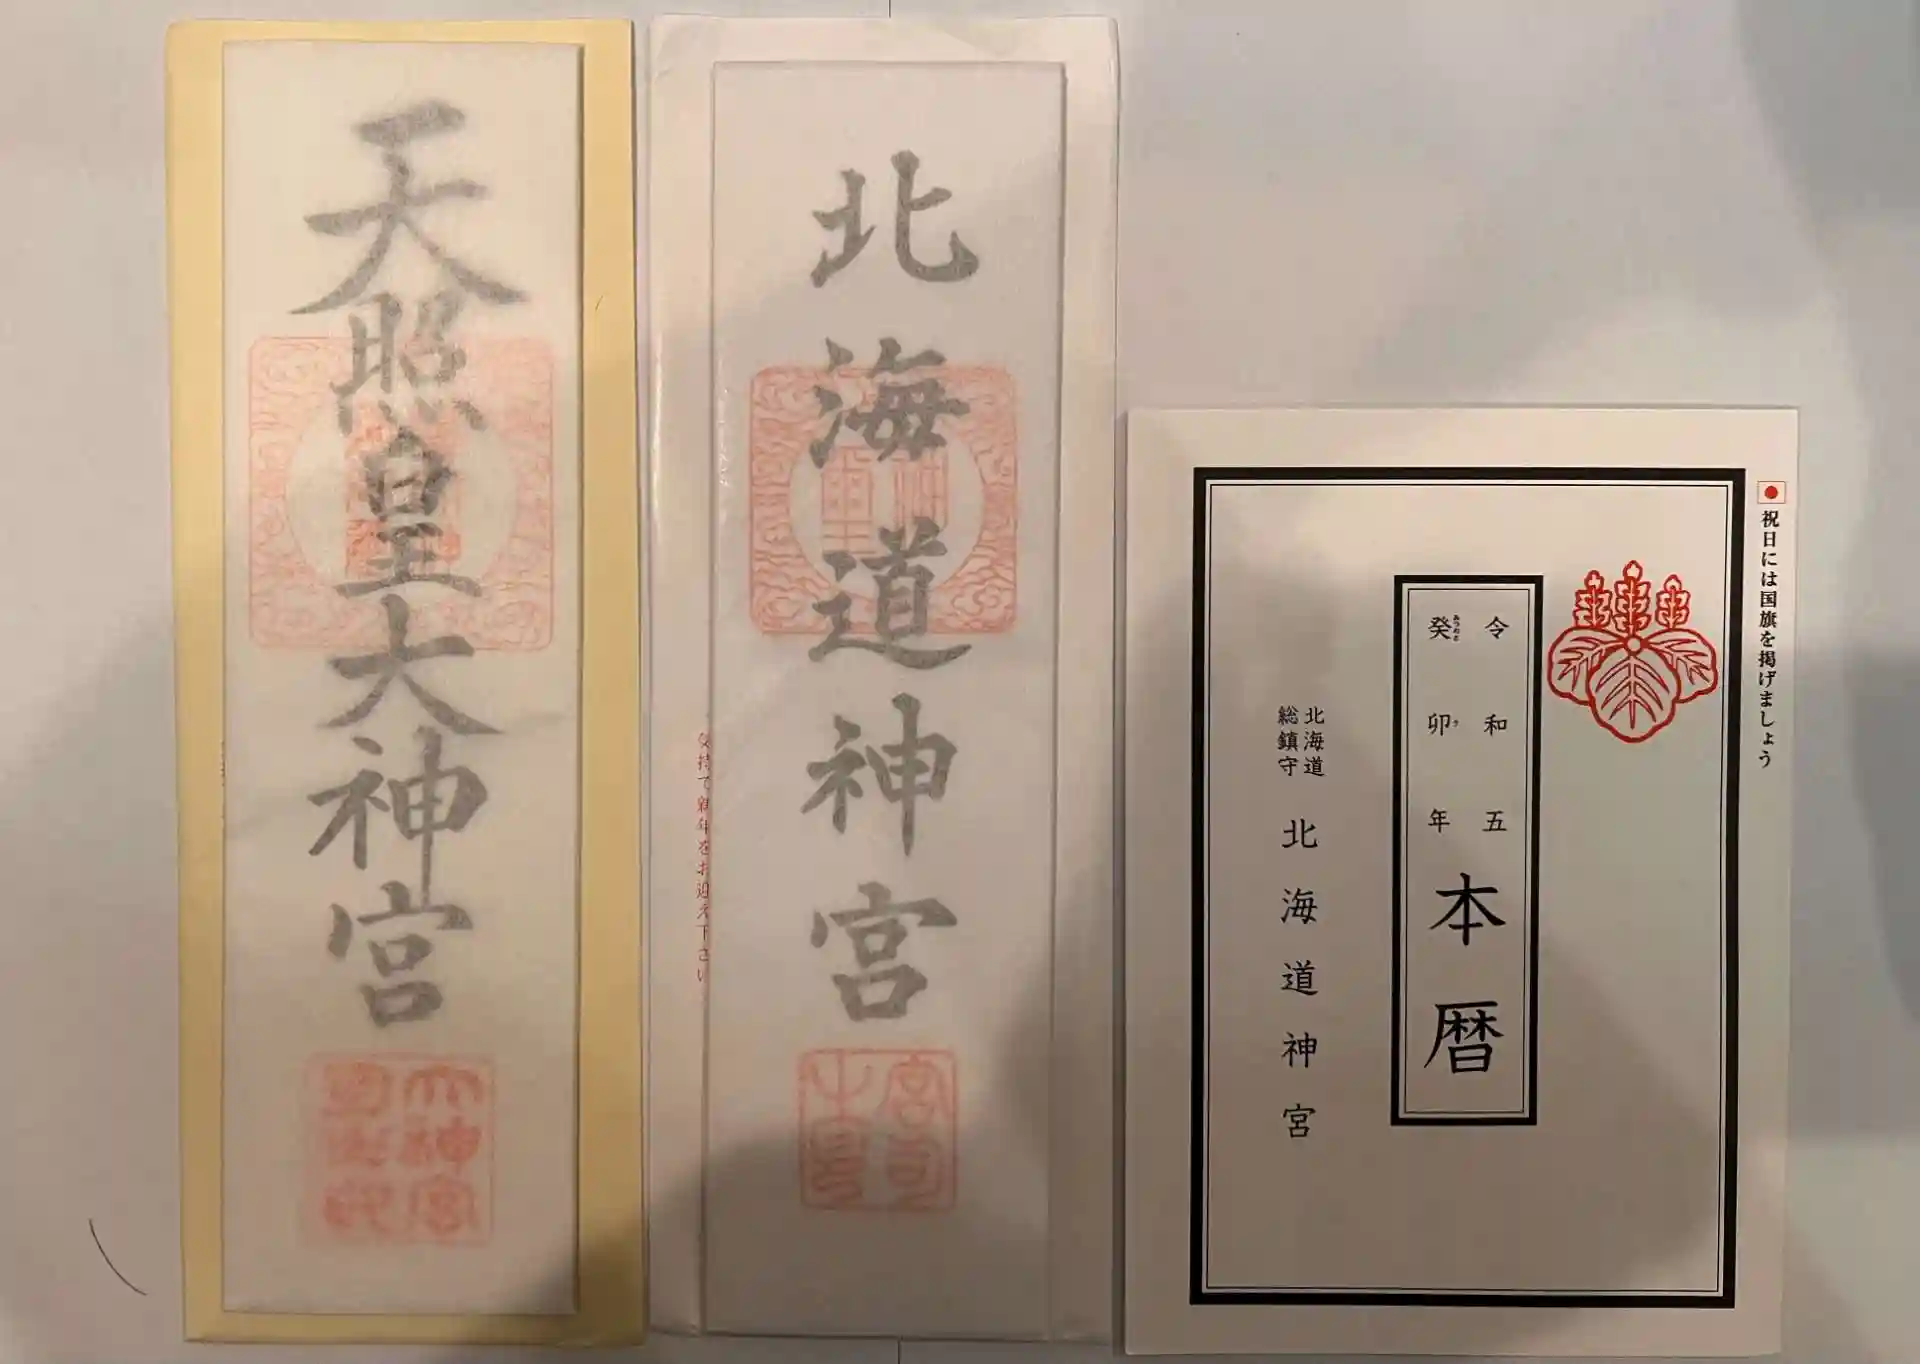 天照皇大神宮
北海道神宮
気持で新年をお迎え下さい
祝日には国旗を掲げましょう
令和五
癸卯年
みずのと
う
本暦
北海道
総鎮守
北海道神宮